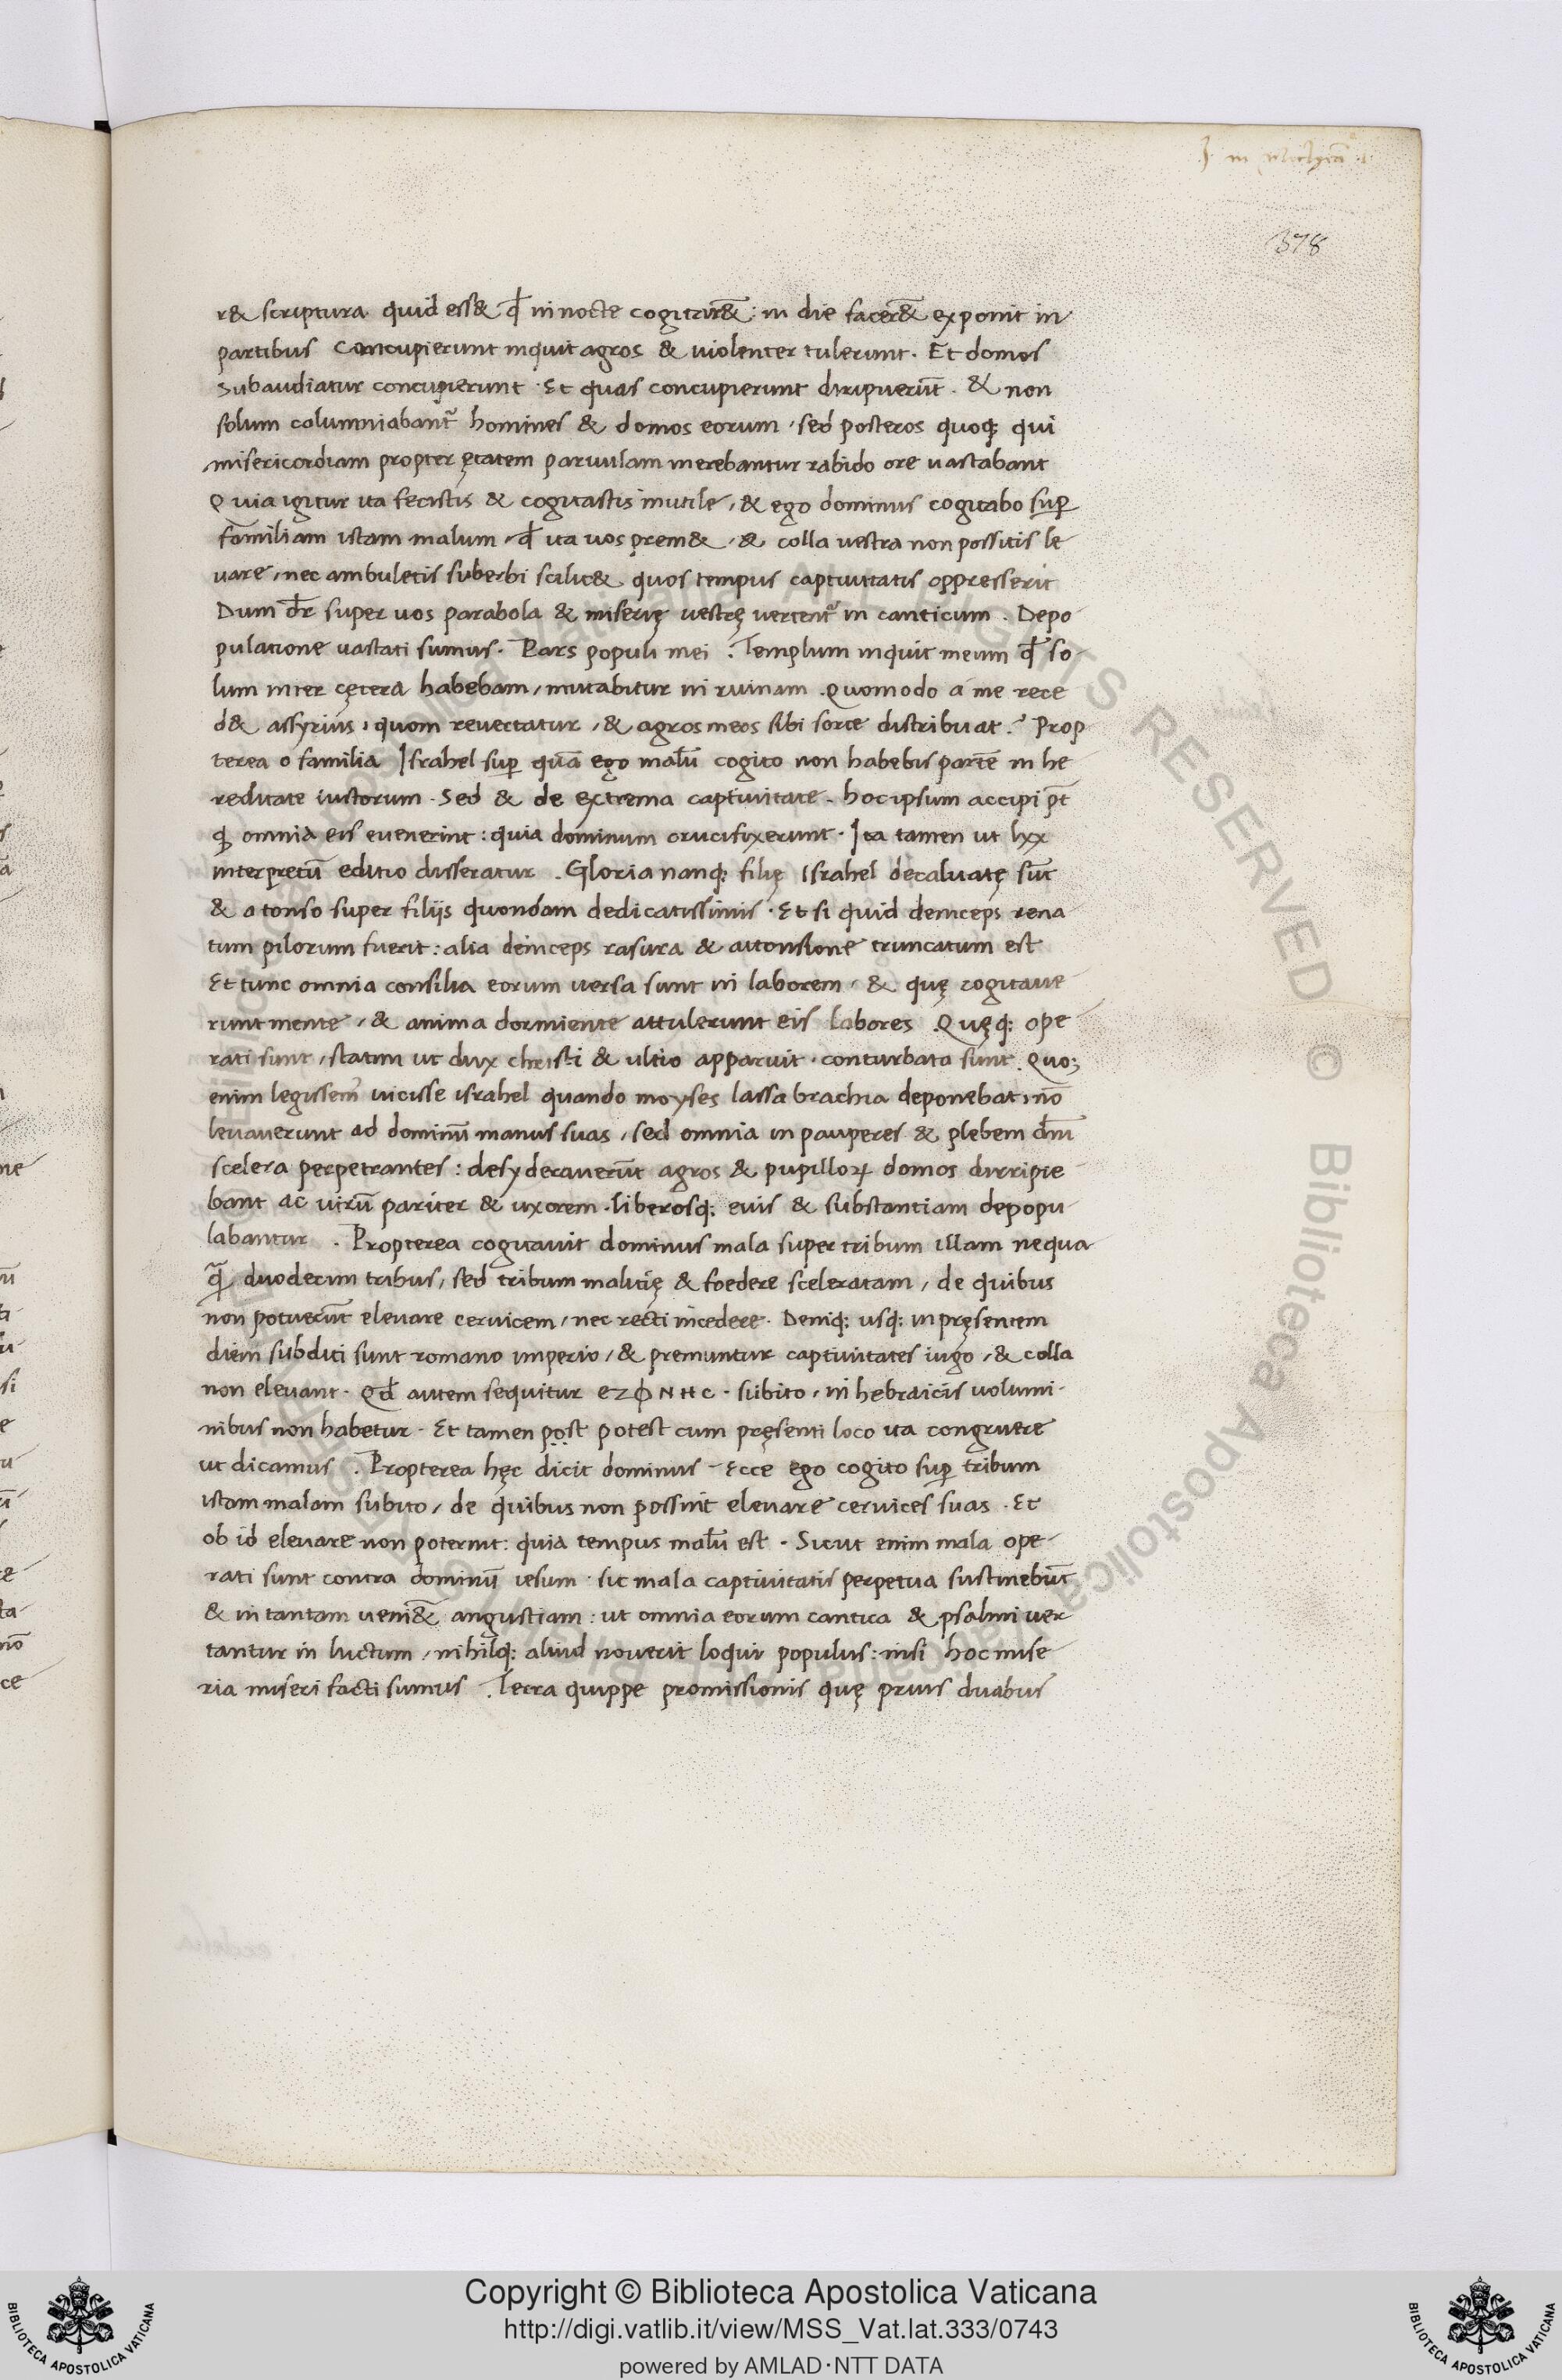 378
r& scriptura quid ess& qđ in nocte cogitar&̄: in die facer&̄ exponit in
partibus Concupierunt inquit agros & uiolenter tulerunt. Et domos
subaudiatur concupierunt. Et quas concupierunt diripuerūt. & non
solum calumniabant᷑ homines & domos eorum, sed posteros quoq; qui
misericordiam propter ętatem paruulam merebantur rabido ore uastabant
Quia igitur ita fecistis & cogitastis inutile, & ego dominus cogitabo sup̄
familiam istam malum, qđ ita uos prem&, & colla uestra non possitis le
uare, nec ambuletis suberbi scilic& quos tempus captiuitatis oppresserit
Dum dr̄ super uos parabola & miserię uestrę uertent᷑ in canticum. Depo
pulatione uastati sumus. Pars populi mei. Templum inquit meum qđ so
lum inter cętera habebam, mutabitur in ruinam. Quomodo a me rece
d& assyrius, quom reuertatur, & agros meos sibi sorte distribuat? Prop
terea o familia Israhel sup̄ quā ego malū cogito non habebis partē in he
reditate iustorum. Sed & de extrema captiuitate. hoc ipsum accipi pt̄
ꝙ omnia eis euenerint: quia dominum crucifixerunt. Ita tamen ut lxx
interpretū editio disseratur. Gloria nanq; filię Israhel decaluatę sūt
& a tonso super filijs quondam dedicatissimis. Et si quid deinceps rena
tum pilorum fuerit: alia deinceps rasura & attonsione truncatum est
Et tunc omnia consilia eorum uersa sunt in laborem, & quę cogitaue
runt mente, & anima dormiente attulerunt eis labores. Quęq; ope
rati sunt, statim ut dux christi & ultio apparuit. conturbata sunt. Quo;
enim legissem̄ uicisse israhel quando moyses lassa brachia deponebat, nō
leuauerunt ad dominū manus suas, sed omnia in pauperes & plebem dn̄i
scelera perpetrantes: desyderauerūt agros & pupilloꝝ domos dirripie
bant ac uirū pariter & uxorem. liberosq; euis & substantiam depopu
labantur. Propterea cogitauit dominus mala super tribum illam nequa
ꝗ̄, duodecim tribus, sed tribum malitię & foedere sceleratam, de quibus
non potuerūt eleuare ceruicem, nec recti incedere. Deniq; usq; in pręsentem
diem subditi sunt romano imperio, & premuntur captiuitates iugo, & colla
non eleuant. Qđ autem sequitur ⲉⲍⲫⲛⲏⲥ. subito, in hebraicis uolumi-
nibus non habetur. Et tamen post potest cum pręsenti loco ita congruere
ut dicamus. Propterea hęc dicit dominus Ecce ego cogito sup̄ tribum
istam malam subito, de quibus non possint eleuare ceruices suas. Et
ob id eleuare non poterint: quia tempus malū est. Sicut enim mala ope-
rati sunt contra dominū iesum. sic mala captiuitatis perpetua sustinebūt
& in tantam ueni&̄ angustiam: ut omnia eorum cantica & psalmi uer
tantur in luctum, nihilq; aliud nouerit loqui populus: nisi hoc mise
ria miseri facti sumus. Terra quippe promissionis quę prius duabus
Copyright © Biblioteca Apostolica Vaticana
http://digi.vatlib.it/view/MSS_Vat.lat.333/0743
powered by AMLAD·NTT DATA
BIBLIOTECA APOSTOLICA VATICANA
BIBLIOTECA APOSTOLICA VATICANA